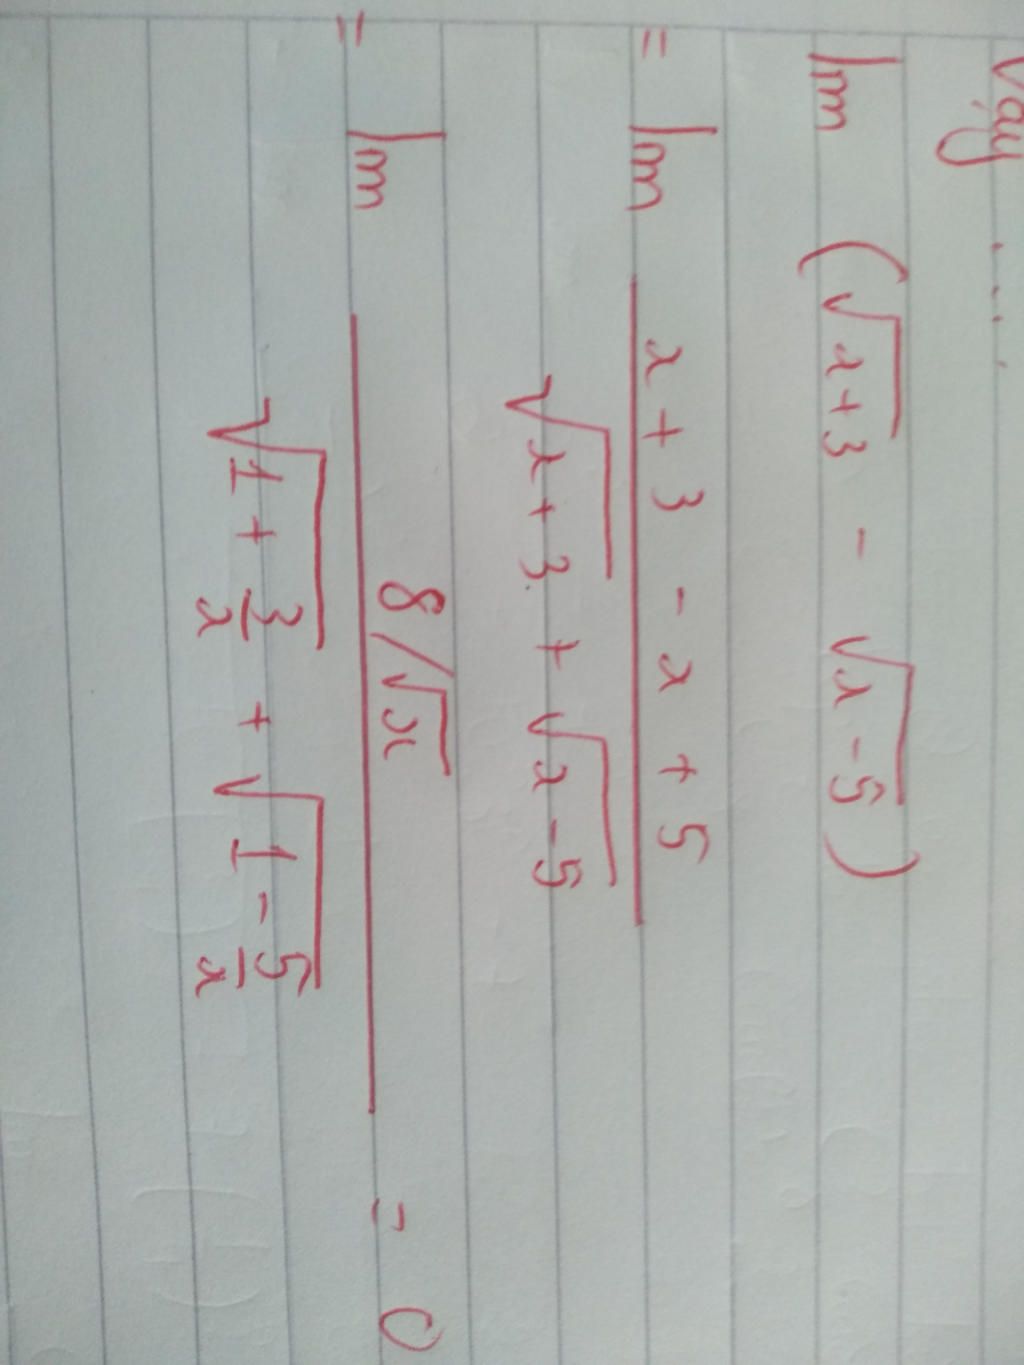 Vậy ....
lim (√(x+3) - √(x-5))
= lim (x + 3 - x + 5)/(√(x+3) + √(x-5))
= lim (8/√x)/(√(1 + 3/x) + √(1 - 5/x)) = 0